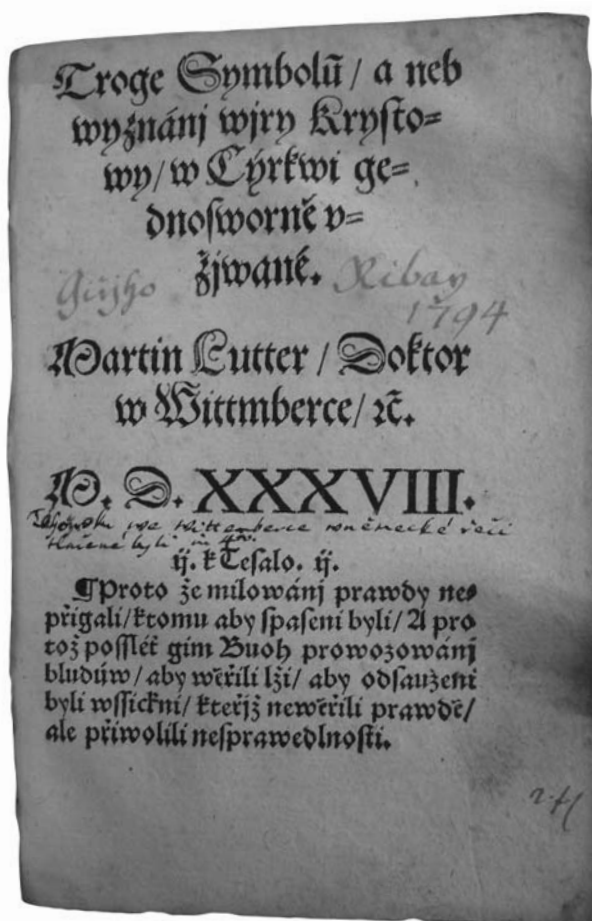 Troge Symbolů / a neb
wyznánj wjry Krysto=
wy / w Cýrkwi ge=
dnosworně v=
žjwané.
Ribay
1794
Martin Lutter / Doktor
w Wittmberce / ꝛc̃.
M. D. XXXVIII.
we Wittenberce w německé řeči
tlačené byli in 4to.
ij. k Tesalo. ij.
¶Proto že milowánj prawdy ne=
přigali / ktomu aby spaseni byli / A pro
tož posslét gim Buoh prowozowánj
bludůw / aby wěřili lži / aby odsauzeni
byli wssickni / kteřjž newěřili prawdě /
ale přiwolili nesprawedlnosti.